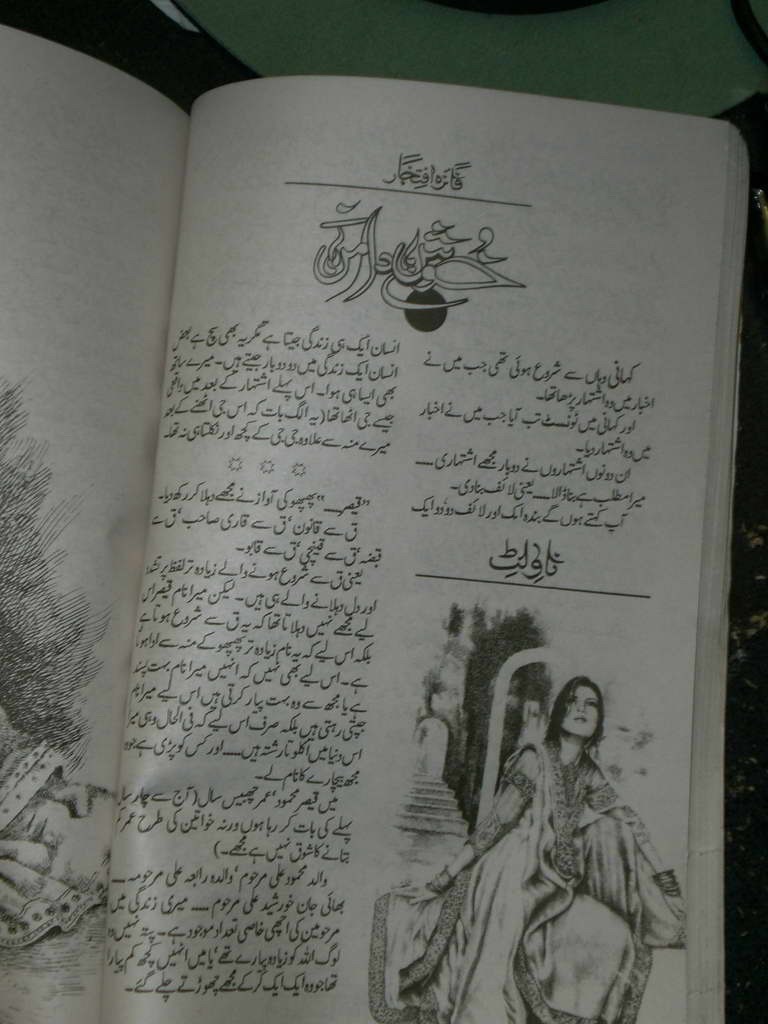 فائزہ افتخار
خوش دامن کی
کہانی وہاں سے شروع ہوئی تھی جب میں نے
اخبار میں وہ اشتہار پڑھا تھا۔
اور کہانی میں ٹوئسٹ تب آیا جب میں نے اخبار
میں وہ اشتہار دیا۔
ان دونوں اشتہاروں نے دوبار مجھے اشتہاری.....
میرا مطلب ہے بنا ڈالا..... یعنی لائف بنا دی۔
آپ کہتے ہوں گے بندہ اک اور لائف دو دو ایک
ناولٹ
انسان ایک ہی زندگی جیتا ہے مگر یہ بھی سچ ہے بعض
انسان ایک زندگی میں دو دو بار جیتے ہیں۔ میرے ساتھ
بھی ایسا ہی ہوا۔ اس پہلے اشتہار کے بعد میں واقعی
جیسے جی اٹھا تھا (یہ الگ بات کہ اس جی اٹھنے کے بعد
میرے منہ سے علاوہ جی جی کے کچھ اور نکلتا ہی نہ تھا۔
”قیصر.....“ پھپھو کی آواز نے مجھے دہلا کر رکھ دیا۔
ق سے قانون‘ ق سے قاری صاحب‘ ق سے
قبضہ‘ ق سے قینچی‘ ق سے قابو۔
یعنی ق سے شروع ہونے والے زیادہ تر لفظ پر تشدد
اور دل دہلانے والے ہی ہیں۔ لیکن میرا نام قیصر اس
لیے مجھے نہیں دہلاتا تھا کہ یہ ق سے شروع ہوتا ہے
بلکہ اس لیے کہ یہ نام زیادہ تر پھپھو کے منہ سے ادا ہوتا
ہے۔ اس لیے بھی نہیں کہ انہیں میرا نام بہت پسند
ہے یا مجھ سے وہ بہت پیار کرتی ہیں اس لیے میرا نام
جپتی رہتی ہیں بلکہ صرف اس لیے کہ فی الحال وہی میرا
اس دنیا میں اکلوتا رشتہ ہیں..... اور کس کو پڑی ہے جو وہ
مجھ بیچارے کا نام لے۔
میں قیصر محمود‘ عمر چھبیس سال (آج سے چار سال
پہلے کی بات کر رہا ہوں ورنہ خواتین کی طرح عمر کم
بتانے کا شوق نہیں ہے مجھے۔)
والد محمود علی مرحوم‘ والدہ رابعہ علی مرحومہ.....
بھائی جان خورشید علی مرحوم..... میری زندگی میں
مرحومین کی اچھی خاصی تعداد موجود ہے۔ پتہ نہیں وہ
لوگ اللہ کو زیادہ پیارے تھے‘ یا میں انہیں کچھ کم پیارا
تھا جو وہ ایک ایک کر کے مجھے چھوڑتے چلے گئے۔